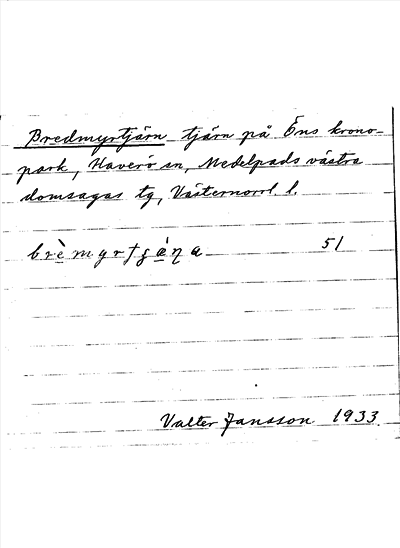 Bredmyrtjärn tjärn på Öns krono-
park, Haverö sn, Medelpads västra
domsagas tg, Västernorrl. l.
brèmyrtʂæ̀ɳa 51
Valter Jansson 1933.